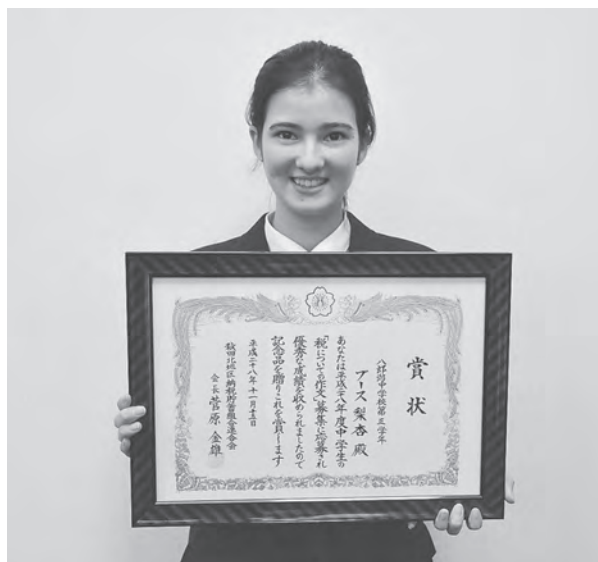 賞状
八郎潟中学校第三学年
ブース 梨杏 殿
あなたは平成二十八年度中学生の
「税についての作文」募集に応募され
優秀な成績を収められましたので
記念品を贈りこれを賞します
平成二十八年十一月十五日
秋田北地区納税貯蓄組合連合会
会長 菅原 金雄